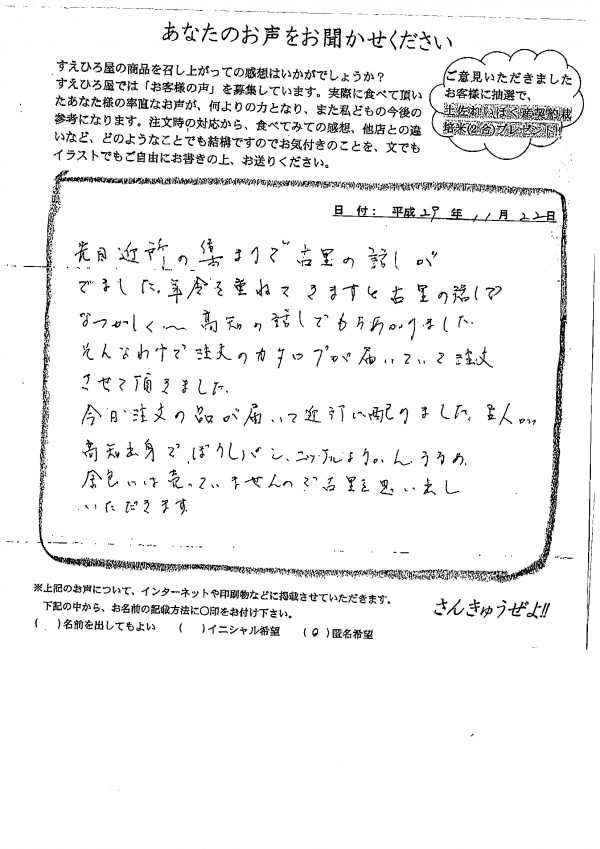 あなたのお声をお聞かせください
すえひろ屋の商品を召し上がっての感想はいかがでしょうか？
すえひろ屋では「お客様の声」を募集しています。実際に食べて頂い
たあなた様の率直なお声が、何よりの力となり、また私どもの今後の
参考になります。注文時の対応から、食べてみての感想、他店との違
いなど、どのようなことでも結構ですのでお気付きのことを、文でも
イラストでもご自由にお書きの上、お送りください。
ご意見いただきました
お客様に抽選で、
米(2合)プレゼント!!
日 付： 平成 29 年 11 月 22 日
先日近所の集まりで古里の話しが
でました。年令を重ねてきますと古里の話しで
なつかしく〜高知の話しでもりあがりました。
そんなわけで注文のカタログが届いていて注文
させて頂きました。
今日注文の品が届いて近所に配りました。主人が
高知出身で、ぼうしパン、ニッケル
は売っていませんので古里を思い出し
いただきます
※上記のお声について、インターネットや印刷物などに掲載させていただきます。
下記の中から、お名前の記載方法に〇印をお付け下さい。
(　)名前を出してもよい　(　)イニシャル希望　(〇)匿名希望
さんきゅうぜよ!!